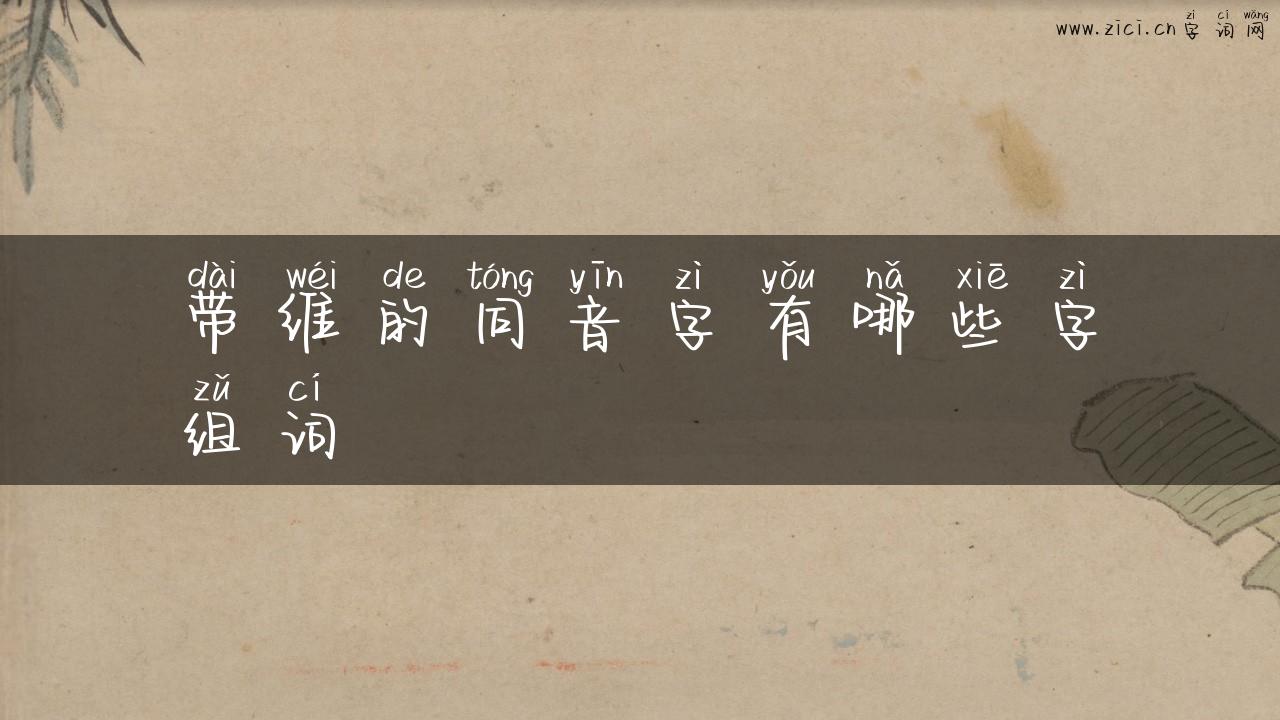 zì cí wǎng
www.zici.cn 字词网
dài wéi de tóng yīn zì yǒu nǎ xiē zì
带维的同音字有哪些字
zǔ cí
组词